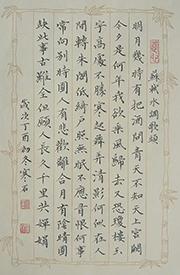 蘇軾水調歌頭
明月幾時有把酒問青天不知天上宮闕
今夕是何年我欲乘風歸去又恐瓊樓玉
宇高處不勝寒起舞弄清影何似在人
間轉朱閣低綺戶照無眠不應有恨何事
常向別時圓人有悲歡離合月有陰晴圓
缺此事古難全但願人長久千里共嬋娟
歲次丁酉初冬寒石